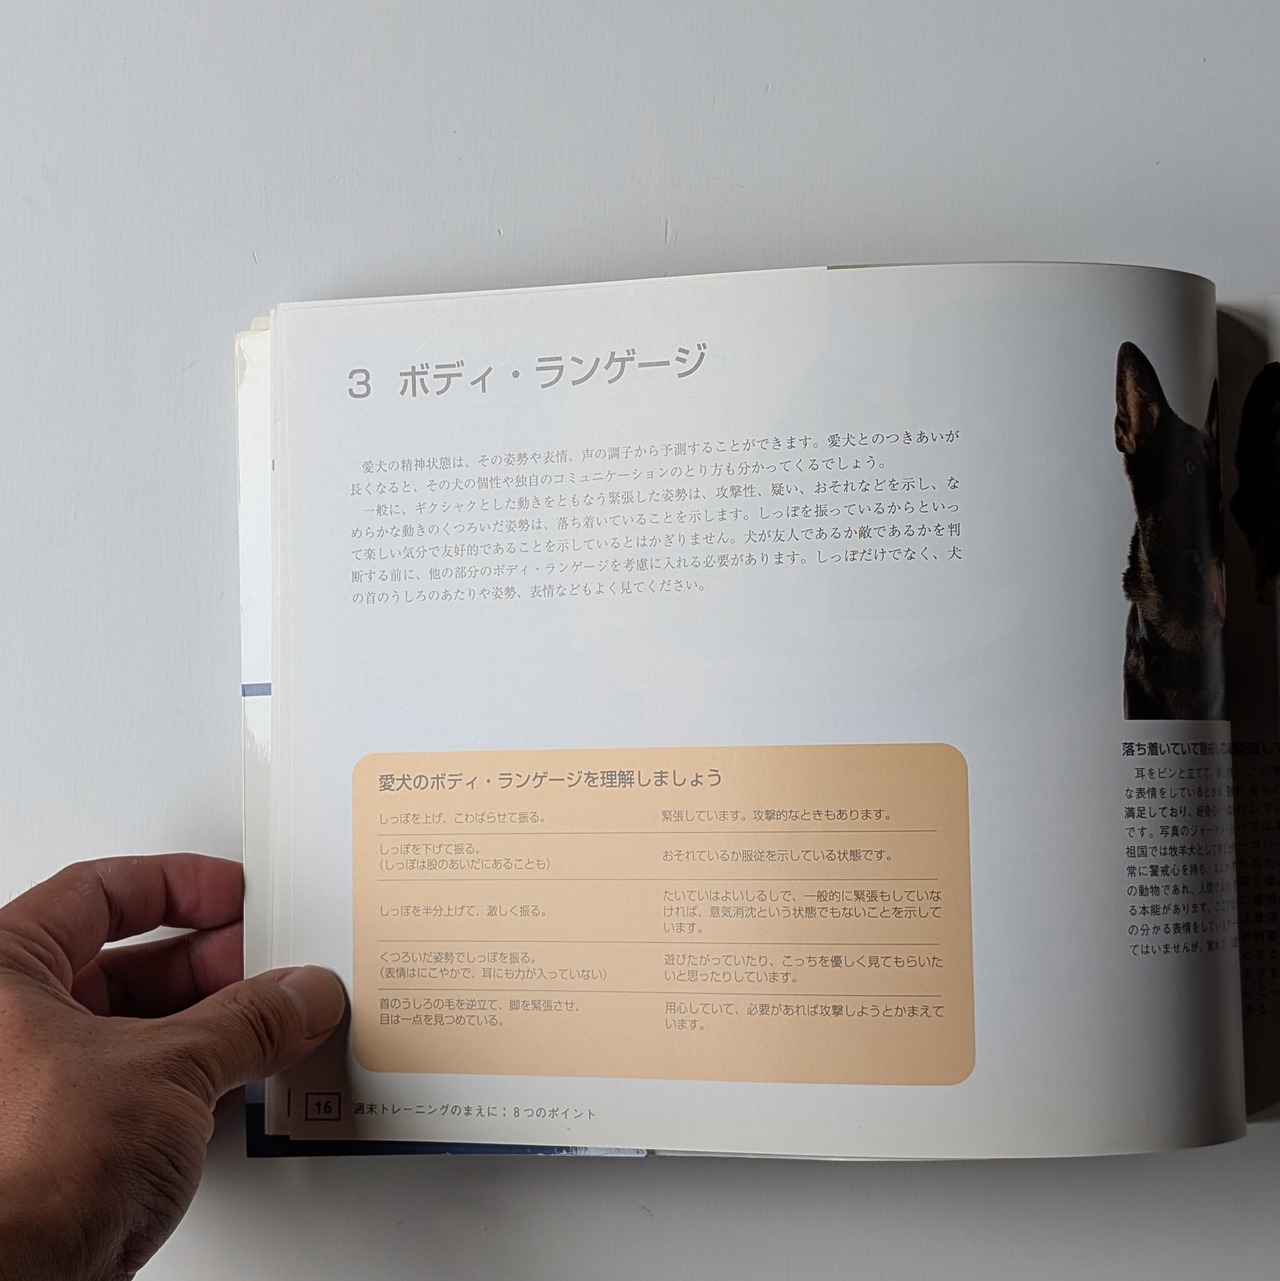 3 ボディ・ランゲージ
愛犬の精神状態は、その姿勢や表情、声の調子から予測することができます。愛犬とのつきあいが
長くなると、その犬の個性や独自のコミュニケーションのとり方も分かってくるでしょう。
一般に、ギクシャクとした動きをともなう緊張した姿勢は、攻撃性、疑い、おそれなどを示し、な
めらかな動きのくつろいだ姿勢は、落ち着いていることを示します。しっぽを振っているからといっ
て楽しい気分で友好的であることを示しているとはかぎりません。犬が友人であるか敵であるかを判
断する前に、他の部分のボディ・ランゲージを考慮に入れる必要があります。しっぽだけでなく、犬
の首のうしろのあたりや姿勢、表情などもよく見てください。
愛犬のボディ・ランゲージを理解しましょう
しっぽを上げ、こわばらせて振る。 緊張しています。攻撃的なときもあります。
しっぽを下げて振る。
(しっぽは股のあいだにあることも) おそれているか服従を示している状態です。
しっぽを半分上げて、激しく振る。
たいていはよいしるしで、一般的に緊張もしていな
ければ、意気消沈という状態でもないことを示して
います。
くつろいだ姿勢でしっぽを振る。
(表情はにこやかで、耳にも力が入っていない)
遊びたがっていたり、こっちを優しく見てもらいた
いと思ったりしています。
首のうしろの毛を逆立て、脚を緊張させ、
目は一点を見つめている。
用心していて、必要があれば攻撃しようとかまえて
います。
16 週末トレーニングのまえに:8つのポイント
落ち着いていて
耳をピンと立てて
な表情をしていると
満足しており、
です。写真のジャーマン
祖国では牧羊犬として
常に警戒心を持ち、
の動物であれ、人間
る本能があります。
の分かる表情をして
てはいませんが、